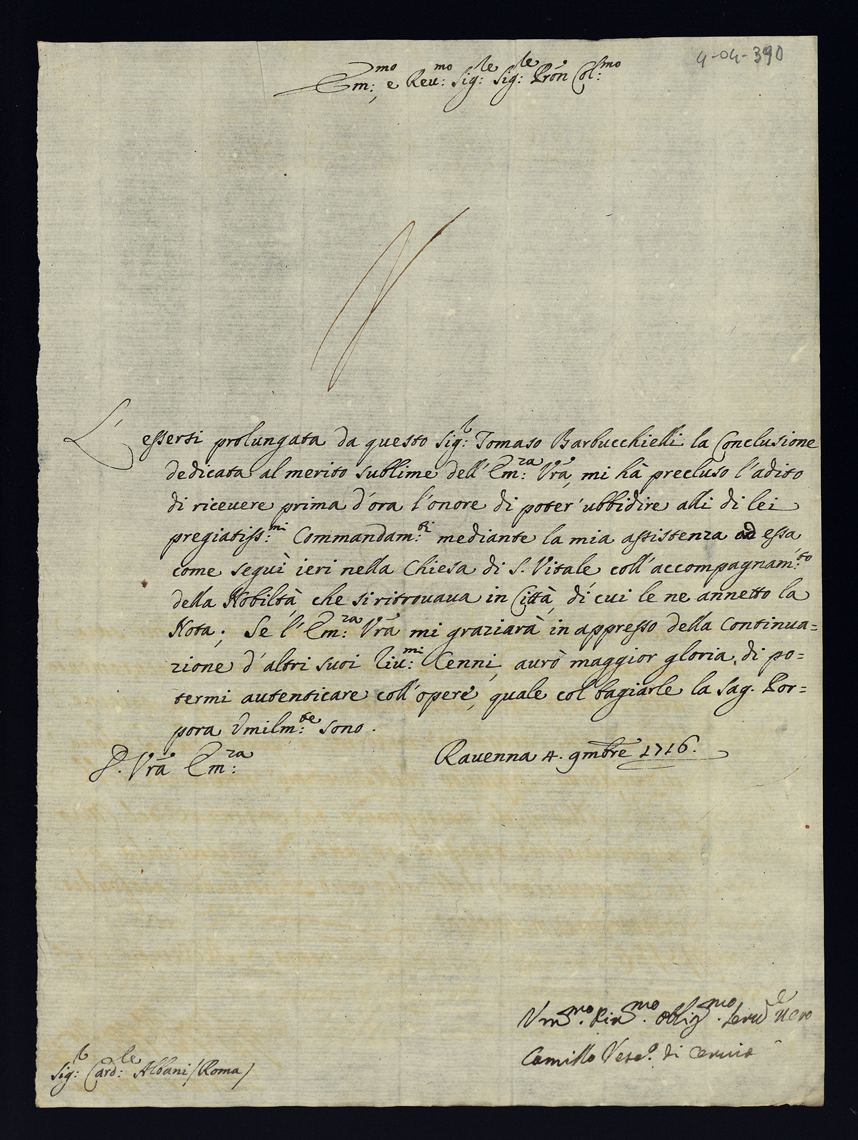 4-04-390
Em:mo e Reu:mo Sig:le Sig:le Pron Col:mo
L'essersi prolungata da questo Sig:r Tomaso Barbucchielli la Conclusione
dedicata al merito sublime dell'Em:za Vra, mi hà precluso l'adito
di riceuere prima d'ora l'onore di poter'ubbidire alli di lei
pregiatiss:mi Commandam:ti mediante la mia assistenza ad essa
come seguì ieri nella Chiesa di S. Vitale coll'accompagnam:to
della Nobiltà, che si ritrouaua in Città, di cui le ne annetto la
Nota; Se l'Em:za Vra mi graziarà in appresso della Continua=
zione d'altri suoi riu:mi Cenni, aurò maggior gloria di po=
termi autenticare coll'opere, quale col bagiarle la Sag. Por=
pora Vmilm:te sono.
D. Vra Em:za
Rauenna 4. 9mbre 1716.
Vm:mo Diu:mo Obblig:mo Seru:le uero
Camillo Vesc:o di Ceruia
Sig:r Card:le Albani (Roma)